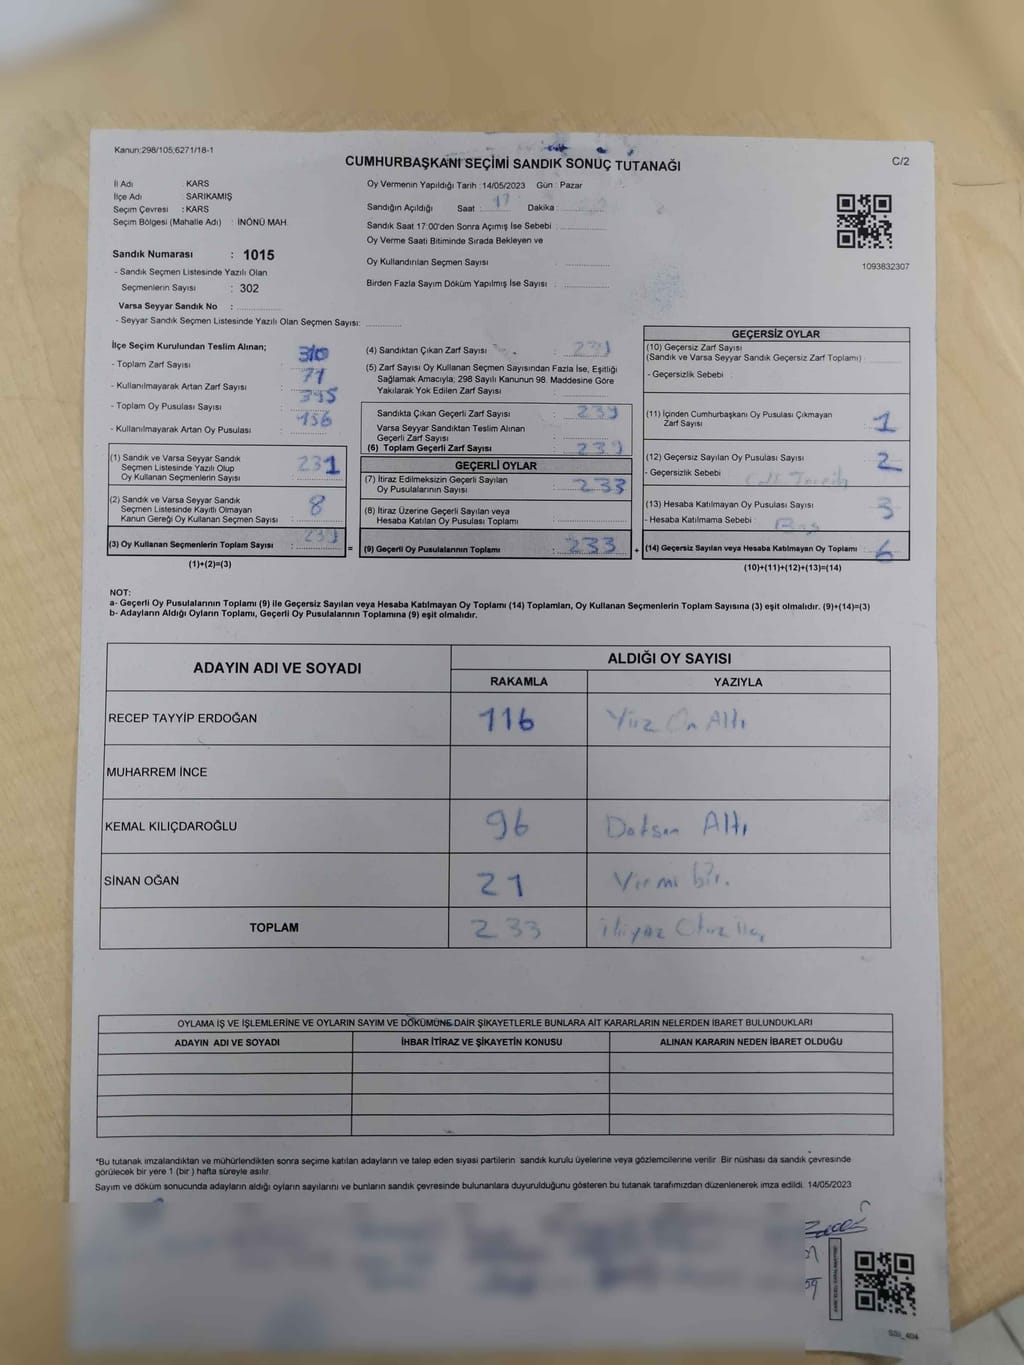 Kanun:298/105,6271/18-1
CUMHURBAŞKANI SEÇİMİ SANDIK SONUÇ TUTANAĞI
C/2
İl Adı : KARS
İlçe Adı : SARIKAMIŞ
Seçim Çevresi : KARS
Seçim Bölgesi (Mahalle Adı) : İNÖNÜ MAH.
Sandık Numarası : 1015
- Sandık Seçmen Listesinde Yazılı Olan
Seçmenlerin Sayısı : 302
Varsa Seyyar Sandık No :
- Seyyar Sandık Seçmen Listesinde Yazılı Olan Seçmen Sayısı:
Oy Vermenin Yapıldığı Tarih : 14/05/2023 Gün : Pazar
Sandığın Açıldığı Saat : 17 Dakika :
Sandık Saat 17:00'den Sonra Açımış İse Sebebi :
Oy Verme Saati Bitiminde Sırada Bekleyen ve
Oy Kullandırılan Seçmen Sayısı
Birden Fazla Sayım Döküm Yapılmış İse Sayısı :
1093832307
İlçe Seçim Kurulundan Teslim Alınan;
- Toplam Zarf Sayısı : 310
- Kullanılmayarak Artan Zarf Sayısı : 71
- Toplam Oy Pusulası Sayısı : 395
- Kullanılmayarak Artan Oy Pusulası : 156
(1) Sandık ve Varsa Seyyar Sandık
Seçmen Listesinde Yazılı Olup
Oy Kullanan Seçmenlerin Sayısı : 231
(2) Sandık ve Varsa Seyyar Sandık
Seçmen Listesinde Kayıtlı Olmayan
Kanun Gereği Oy Kullanan Seçmen Sayısı : 8
(3) Oy Kullanan Seçmenlerin Toplam Sayısı : 239
(1)+(2)=(3)
(4) Sandıktan Çıkan Zarf Sayısı : 239
(5) Zarf Sayısı Oy Kullanan Seçmen Sayısından Fazla İse, Eşitliği
Sağlamak Amacıyla, 298 Sayılı Kanunun 98. Maddesine Göre
Yakılarak Yok Edilen Zarf Sayısı :
Sandıkta Çıkan Geçerli Zarf Sayısı : 239
Varsa Seyyar Sandıktan Teslim Alınan
Geçerli Zarf Sayısı :
(6) Toplam Geçerli Zarf Sayısı : 239
GEÇERLİ OYLAR
(7) İtiraz Edilmeksizin Geçerli Sayılan
Oy Pusulalarının Sayısı : 233
(8) İtiraz Üzerine Geçerli Sayılan veya
Hesaba Katılan Oy Pusulası Toplamı :
= (9) Geçerli Oy Pusulalarının Toplamı : 233 +
GEÇERSİZ OYLAR
(10) Geçersiz Zarf Sayısı
(Sandık ve Varsa Seyyar Sandık Geçersiz Zarf Toplamı) :
- Geçersizlik Sebebi :
(11) İçinden Cumhurbaşkanı Oy Pusulası Çıkmayan
Zarf Sayısı : 1
(12) Geçersiz Sayılan Oy Pusulası Sayısı : 2
- Geçersizlik Sebebi
(13) Hesaba Katılmayan Oy Pusulası Sayısı : 3
- Hesaba Katılmama Sebebi : Boş
(14) Geçersiz Sayılan veya Hesaba Katılmayan Oy Toplamı : 6
(10)+(11)+(12)+(13)=(14)
NOT:
a- Geçerli Oy Pusulalarının Toplamı (9) ile Geçersiz Sayılan veya Hesaba Katılmayan Oy Toplamı (14) Toplamları, Oy Kullanan Seçmenlerin Toplam Sayısına (3) eşit olmalıdır. (9)+(14)=(3)
b- Adayların Aldığı Oyların Toplamı, Geçerli Oy Pusulalarının Toplamına (9) eşit olmalıdır.
ADAYIN ADI VE SOYADI
ALDIĞI OY SAYISI
RAKAMLA YAZIYLA
RECEP TAYYİP ERDOĞAN 116 Yüz On Altı
MUHARREM İNCE
KEMAL KILIÇDAROĞLU 96 Doksan Altı
SİNAN OĞAN 21 Yirmi bir.
TOPLAM 233 ikiyüz Otuz üç
OYLAMA İŞ VE İŞLEMLERİNE VE OYLARIN SAYIM VE DÖKÜMÜNE DAİR ŞİKAYETLERLE BUNLARA AİT KARARLARIN NELERDEN İBARET BULUNDUKLARI
ADAYIN ADI VE SOYADI İHBAR İTİRAZ VE ŞİKAYETİN KONUSU ALINAN KARARIN NEDEN İBARET OLDUĞU
"Bu tutanak imzalandıktan ve mühürlendikten sonra seçime katılan adayların ve talep eden siyasi partilerin sandık kurulu üyelerine veya gözlemcilerine verilir. Bir nüshası da sandık çevresinde
görülecek bir yere 1 (bir) hafta süreyle asılır.
Sayım ve döküm sonucunda adayların aldığı oyların sayılarını ve bunların sandık çevresinde bulunanlara duyurulduğunu gösteren bu tutanak tarafımızdan düzenlenerek imza edildi. 14/05/2023